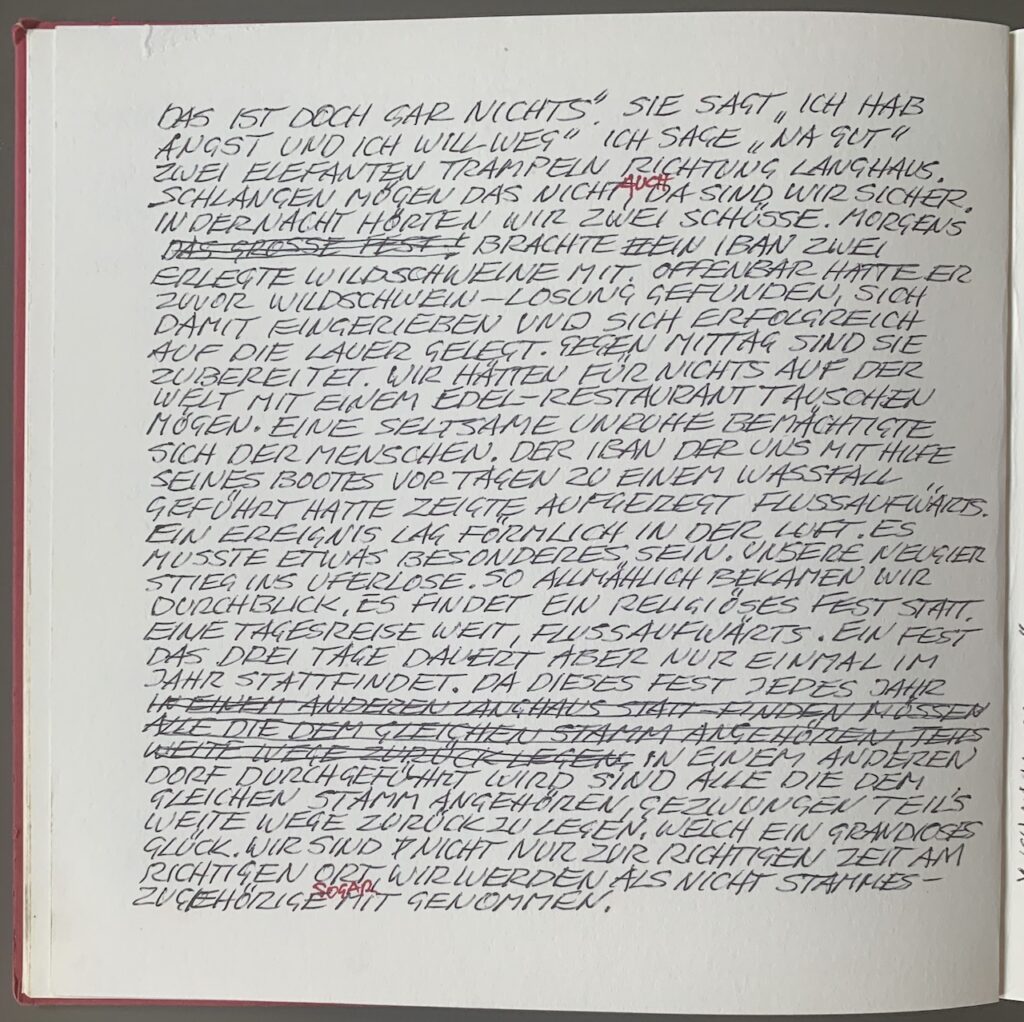 DAS IST DOCH GAR NICHTS". SIE SAGT „ICH HAB
ANGST UND ICH WILL WEG" ICH SAGE „NA GUT"
ZWEI ELEFANTEN TRAMPELN RICHTUNG LANGHAUS.
SCHLANGEN MÖGEN DAS NICHT, AUCH DA SIND WIR SICHER.
IN DER NACHT HÖRTEN WIR ZWEI SCHÜSSE. MORGENS
DAS GROSSE FEST! BRACHTE EIN IBAN ZWEI
ERLEGTE WILDSCHWEINE MIT. OFFENBAR HATTE ER
ZUVOR WILDSCHWEIN-LOSUNG GEFUNDEN, SICH
DAMIT EINGERIEBEN UND SICH ERFOLGREICH
AUF DIE LAUER GELEGT. GEGEN MITTAG SIND SIE
ZUBEREITET. WIR HÄTTEN FÜR NICHTS AUF DER
WELT MIT EINEM EDEL-RESTAURANT TAUSCHEN
MÖGEN. EINE SELTSAME UNRUHE BEMÄCHTIGTE
SICH DER MENSCHEN. DER IBAN DER UNS MIT HILFE
SEINES BOOTES VOR TAGEN ZU EINEM WASSFALL
GEFÜHRT HATTE ZEIGTE AUFGEREGT FLUSSAUFWÄRTS.
EIN EREIGNIS LAG FÖRMLICH IN DER LUFT. ES
MUSSTE ETWAS BESONDERES SEIN. UNSERE NEUGIER
STIEG INS UFERLOSE. SO ALLMÄHLICH BEKAMEN WIR
DURCHBLICK. ES FINDET EIN RELIGIÖSES FEST STATT.
EINE TAGESREISE WEIT, FLUSSAUFWÄRTS. EIN FEST
DAS DREI TAGE DAUERT ABER NUR EINMAL IM
JAHR STATTFINDET. DA DIESES FEST JEDES JAHR
IN EINEM ANDEREN LANGHAUS STATT-FINDEN MÜSSEN
ALLE DIE DEM GLEICHEN STAMM ANGEHÖREN, TEILS
WEITE WEGE ZURÜCK LEGEN, IN EINEM ANDEREN
DORF DURCHGEFÜHRT WIRD SIND ALLE DIE DEM
GLEICHEN STAMM ANGEHÖREN, GEZWUNGEN TEILS
WEITE WEGE ZURÜCK ZU LEGEN. WELCH EIN GRANDIOSES
GLÜCK. WIR SIND NICHT NUR ZUR RICHTIGEN ZEIT AM
RICHTIGEN ORT, WIR WERDEN ALS NICHT STAMMES-
ZUGEHÖRIGE SOGAR MIT GENOMMEN.